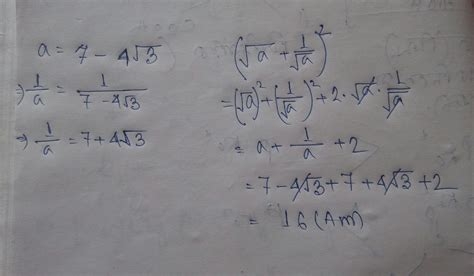 a = 7 - 4√3
⇒ 1/a = 1/(7 - 4√3)
⇒ 1/a = 7 + 4√3
(√a + 1/√a)²
= (√a)² + (1/√a)² + 2 · √a · 1/√a
= a + 1/a + 2
= 7 - 4√3 + 7 + 4√3 + 2
= 16 (Am)